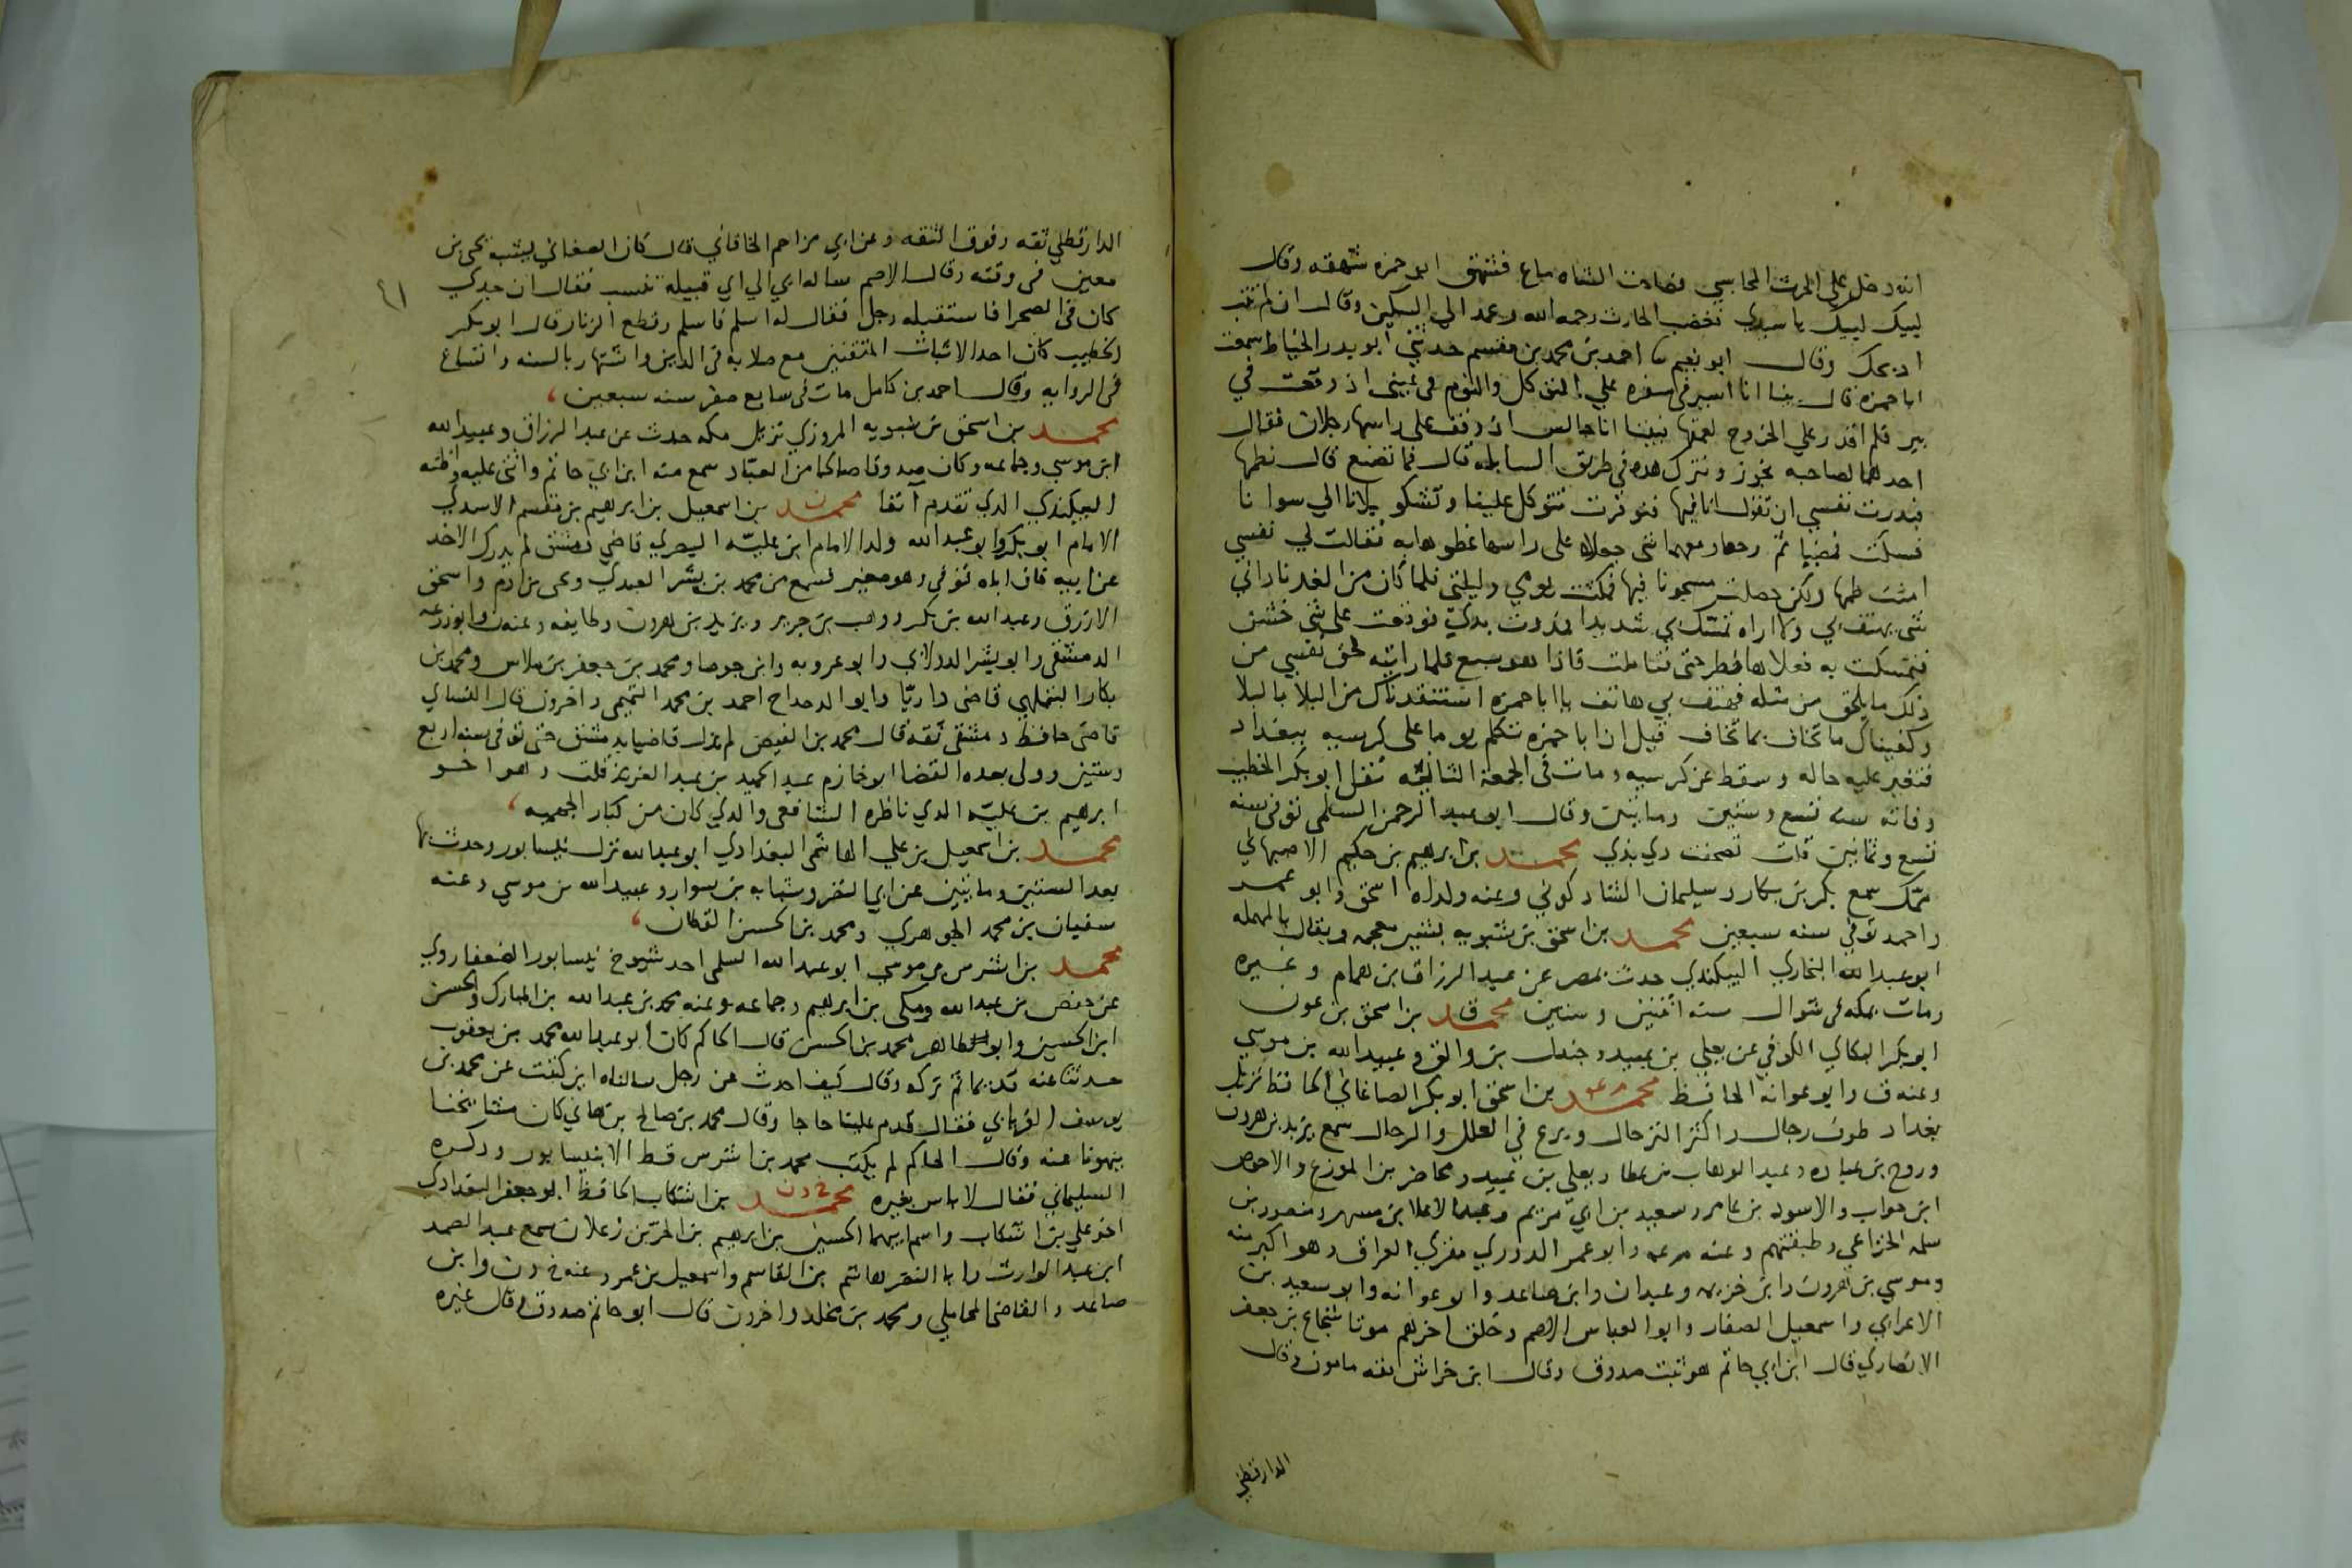 انه دخل على الحرث المحاسبي فصاحت الشاه ماع فشهق ابو حمزه شهقه وقال
لبيك لبيك يا سيدي فغضب الحارث رحمه الله وعمد الى السكين وقال ان لم تتب
اذبحك وقال ابو نعيم سا احمد بن محمد بن مقسم حدثني ابو بدر الخياط سمعت
ابا حمزه قال بينا انا اسير في سفره على التوكل والنوم في عيني اذ وقعت في
بير فلم اقدر على الخروج لعمقها فبينا انا جالس اذ وقف على راسها رجلان فقال
احدهما لصاحبه نجوز ونترك هذه في طريق السابله قال فما نصنع قال نطمها
فبدرت نفسي ان تقول انا فيها فنوديت تتوكل علينا وتشكو بلانا الي سوانا
فسكت فمضيا ثم رجعا ومعهما شي جعلاه على راسها غطوها به فقالت لي نفسي
امنت طمها ولكن حصلت مسجونا فيها فمكثت يومي وليلتي فلما كان من الغد ناداني
شي يهتف بي ولا اراه تمسك بي شديدا فمددت يدي فوقعت على شي خشن
فتمسكت به فعلاها فطرحني فتاملت فاذا هو سبع فلما رايته لحق نفسي من
ذلك ما يلحق من مثله فهتف بي هاتف يا ابا حمزه استنقدناك من البلا بالبلا
وكفيناك ما تخاف بما تخاف قيل ان ابا حمزه تكلم يوما على كرسيه ببغداد
فتغير عليه حاله وسقط عن كرسيه ومات في الجمعة الثانيه نقل ابو بكر الخطيب
وفاته سنه تسع وستين ومايتين وقال ابو عبد الرحمن السلمي توفي سنه
تسع وثمانين قلت تصحفت دي بذي محمد بن ابرهيم بن حكيم الاصبهاني
ممك سمع بكر بن بكار وسليمان الشادكوني وعنه ولداه اسحق وابو عمر
واحمد توفي سنه سبعين محمد بن اسحق بن شبويه بشين معجمه ويقال بالمهمله
ابو عبد الله البخاري البيكندي حدث بمصر عن عبد الرزاق بن همام وغيره
ومات بمكه في شوال سنه اثنين وستين محمد ق بن اسحق بن عون
ابو بكر البكاي الكوفي عن يعلى بن عبيد وجندل بن والق وعبيد الله بن موسي
وعنه ق وابو عوانه الحافظ محمد م عه بن اسحق ابو بكر الصاغاني الحافظ نزيل
بغداد طوف وجال واكثر الترحال وبرع في العلل والرجال سمع يزيد بن هرون
وروح بن عباده وعبد الوهاب بن عطا ويعلى بن عبيد ومحاضر بن المورع والاحوص
ابن جواب والاسود بن عامر وسعيد بن ابي مريم وعبد الاعلا بن مسهر ومنصور بن
سلمه الخزاعي وطبقتهم وعنه م عه وابو عمر الدوري مقري العراق وهو اكبر منه
وموسي بن هرون وابن خزيمه وعبدان وابن صاعد وابو عوانه وابو سعيد بن
الاعرابي واسمعيل الصفار وابو العباس الاصم وخلق اخرهم موتا شجاع بن جعفر
الانصاري قال ابن ابي حاتم هو ثبت صدوق وقال ابن خراش ثقه مامون وقال
الدارقطني
٤١
الدارقطني ثقه وفوق الثقه وعن ابي مزاحم الخاقاني قال كان الصغاني يشبه يحيى بن
معين في وقته وقال الاصم ساله ابي الي اي قبيلة تنسب فقال ان جدي
كان في الصحرا فاستقبله رجل فقال له اسلم فاسلم وقطع الزنار قال ابو بكر
الخطيب كان احد الاثبات المتقنين مع صلابه في الدين واشتهار بالسنه واتساع
في الروايه وقال احمد بن كامل مات في سابع صفر سنه سبعين
محمد بن اسحق بن شبويه المروزي نزيل مكه حدث عن عبد الرزاق وعبيد الله
ابن موسي وجماعه وكان صدوقا صالحا من العباد سمع منه ابن ابي حاتم واثنى عليه واظنه
البيكندي الذي تقدم آنفا محمد ن بن اسمعيل بن ابرهيم بن مقسم الاسدي
الامام ابو بكر وابو عبد الله ولد الامام ابن عليه البصري قاضي دمشق لم يدرك الاخد
عن ابيه فان اباه توفي وهو صغير فسمع من محمد بن بشر العبدي ويحيى بن ادم واسحق
الازرق وعبد الله بن بكر ووهب بن جرير ويزيد بن هرون وطايفه وعنه ن وابو زرعه
الدمشقي وابو بشر الدولابي وابو عروبه وابن جوصا ومحمد بن جعفر بن ملاس ومحمد بن
بكار البتلهي قاضي داريا وابو الدحداح احمد بن محمد التميمي واخرون قال النساي
قاضي حافظ دمشقي ثقه قال محمد بن الفيض لم يزل قاضيا بدمشق حتى توفي سنه اربع
وستين وولى بعده القضا ابو خازم عبد الحميد بن عبد العزيز قلت وهو اخو
ابرهيم بن عليه الذي ناظره الشافعي والذي كان من كبار الجهميه
محمد بن اسمعيل بن علي الهاشمي البغدادي ابو عبد الله نزل نيسابور وحدث بها
بعد الستين ومايتين عن ابي النضر وشبابه بن سوار وعبيد الله بن موسي وعنه
سفيان بن محمد الجوهري ومحمد بن الحسن القطان
محمد بن اشرس بن موسي ابو عبد الله السلمي احد شيوخ نيسابور الضعفا روي
عن حفص بن عبد الله ومكي بن ابرهيم وجماعه وعنه محمد بن عبد الله بن المبارك والحسن
ابن الحسين وابو طاهر محمد بن الحسن قال الحاكم كان ابو عبد الله محمد بن يعقوب
حدثنا عنه قديما ثم تركه وقال كيف احدث عن رجل سالناه اين كتبت عن محمد بن
يوسف الفريابي فقال قدم علينا حاجا وقال محمد بن صالح بن هاني كان مشايخنا
ينهونا عنه وقال الحاكم لم يكتب محمد بن اشرس قط الا بنيسابور وذكره
السليماني فقال لا باس بغيره محمد خ د ن بن اشكاب الحافظ ابو جعفر البغدادي
اخو علي بن اشكاب واسم ابيهما الحسين بن ابرهيم بن الحر بن زعلان سمع عبد الصمد
ابن عبد الوارث وابا النضر هاشم بن القاسم واسمعيل بن عمر وعنه خ د ن وابن
صاعد والقاضي المحاملي ومحمد بن مخلد واخرون قال ابو حاتم صدوق وقال غيره